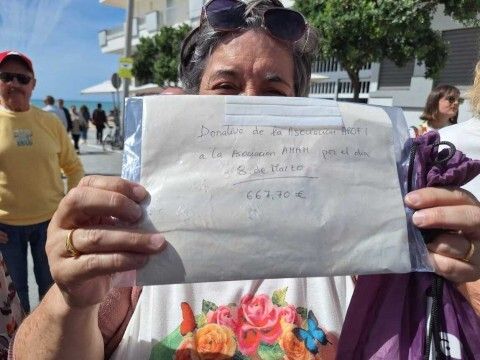 Donativo de la Asociación AVOFI
a la Asociación AMAM por el día
8 de Marzo
667,70 €